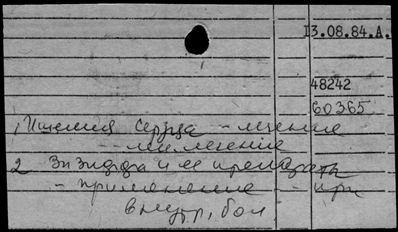 13.08.84.А.
48242
60365
1, Ишемия сердца - лечение
2 и ее препараты
- применение - при
внутр, бол